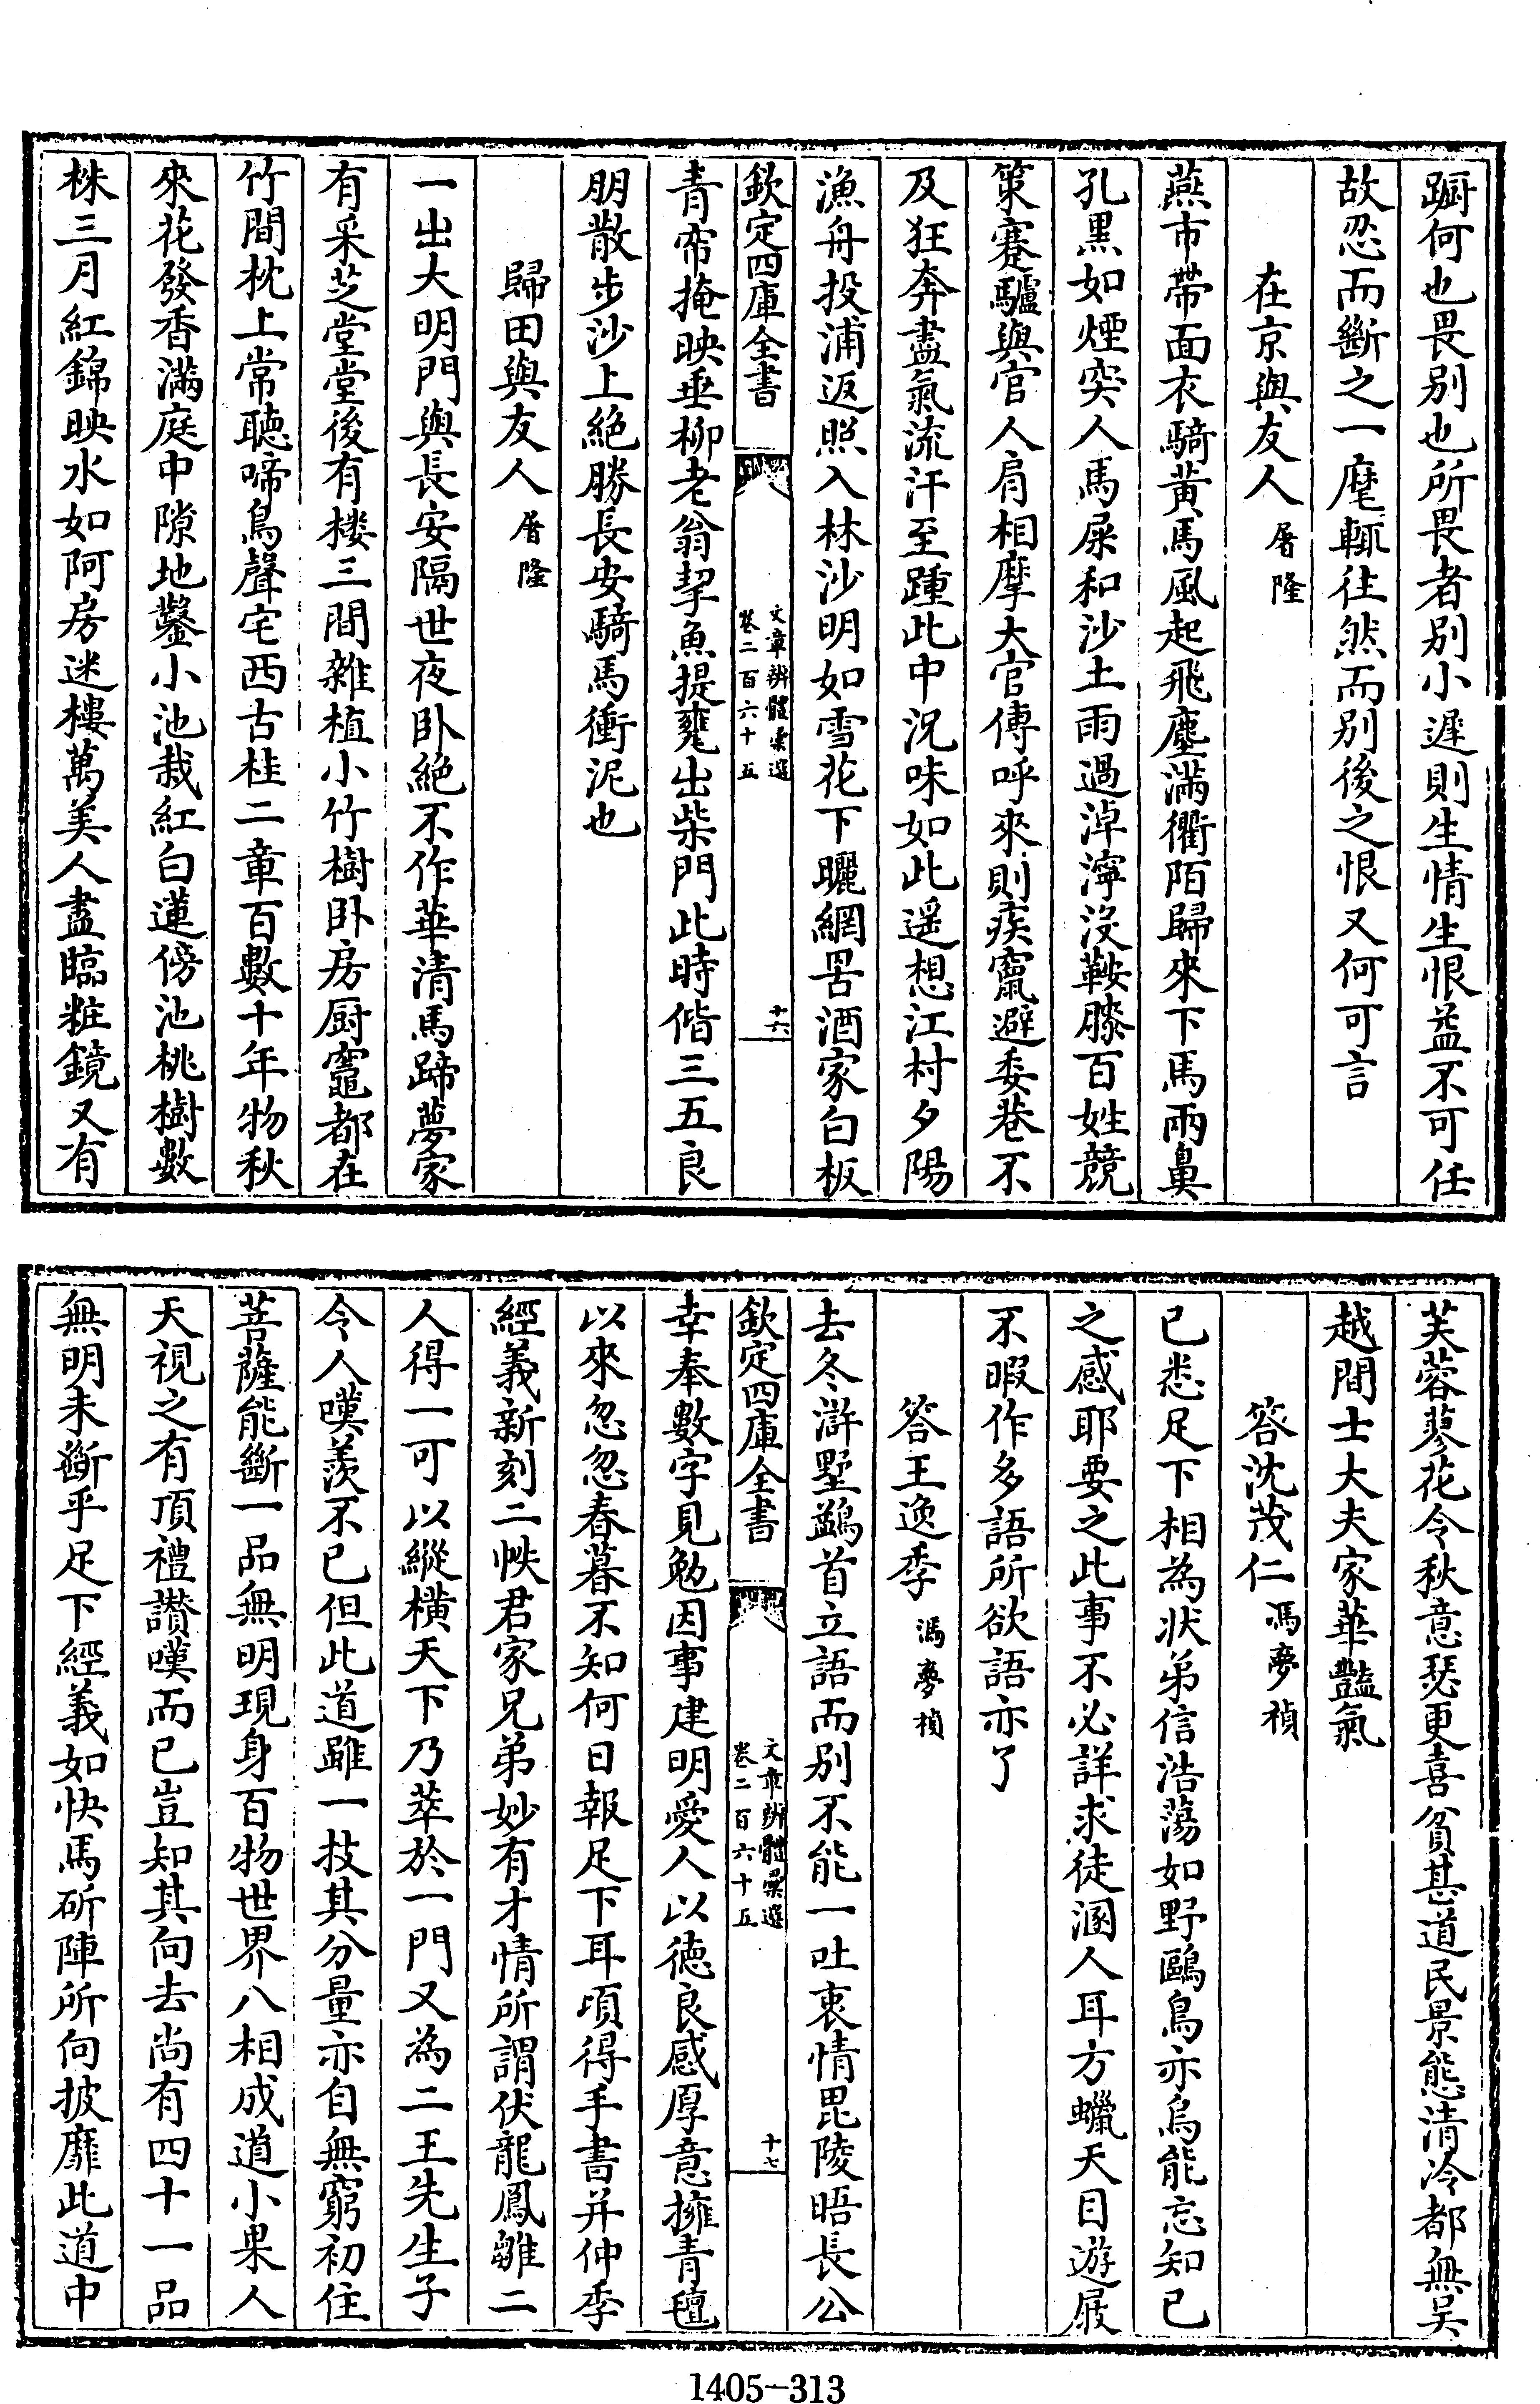 蹰何也畏别也所畏者别小遲則生情生恨益不可任
故忍而斷之一麾輒往然而别後之恨又何可言
在京與友人 屠隆
燕市帶面衣騎黄馬風起飛塵滿衢陌歸來下馬兩鼻
孔黒如煙突人馬屎和沙土雨過淖濘没鞍膝百姓競
策蹇驢與官人肩相摩大官傳呼來則疾竄避委巷不
及狂奔盡氣流汗至踵此中况味如此遥想江村夕陽
漁舟投浦返照入林沙明如雪花下曬網罟酒家白板
欽定四庫全書
文章辨體彚選
卷二百六十五
十六
青帘掩映垂柳老翁挈魚提甕出柴門此時偕三五良
朋散步沙上絶勝長安騎馬衝泥也
歸田與友人 屠隆
一出大明門與長安隔世夜卧絶不作華清馬蹄夢家
有采芝堂堂後有楼三間雜植小竹樹卧房厨竈都在
竹間枕上常聽啼鳥聲宅西古桂二章百數十年物秋
來花發香滿庭中隙地鑿小池栽紅白蓮傍池桃樹數
株三月紅錦映水如阿房迷樓萬美人盡臨粧鏡又有
芙蓉蓼花令秋意瑟更喜貧甚道民景態清冷都無吴
越間士大夫家華豔氣
答沈茂仁 馮夢禎
已悉足下相為状弟信浩蕩如野鷗鳥亦烏能忘知已
之感耶要之此事不必詳求徒溷人耳方蠟天目遊屐
不暇作多語所欲語亦了
答王逸季 馮夢禎
去冬滸墅鷁首立語而别不能一吐衷情毘陵晤長公
欽定四庫全書
文章辨體彚選
卷二百六十五
十七
幸奉數字見勉因事建明愛人以徳良感厚意擁青氊
以來忽忽春暮不知何日報足下耳頃得手書并仲季
經義新刻二帙君家兄弟妙有才情所謂伏龍鳳雛二
人得一可以縱横天下乃萃於一門又為二王先生子
令人嘆羨不已但此道雖一技其分量亦自無窮初住
菩薩能斷一品無明現身百物世界八相成道小果人
天視之有頂禮讃嘆而已豈知其向去尚有四十一品
無明未斷乎足下經義如快馬斫陣所向披靡此道中
1405-313